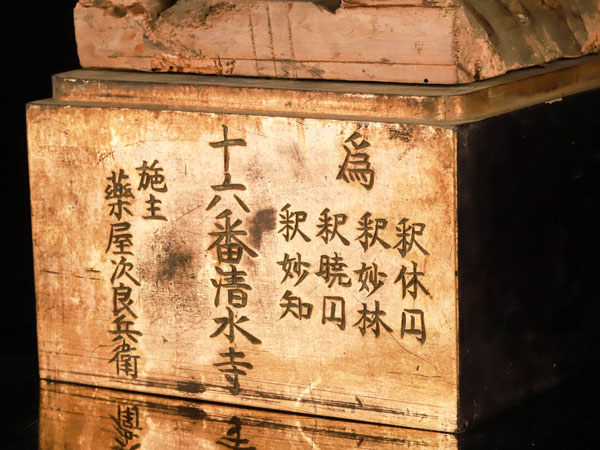 為
釈休円
釈妙林
釈暁円
釈妙知
十六番清水寺
施主
薬屋次良兵衛